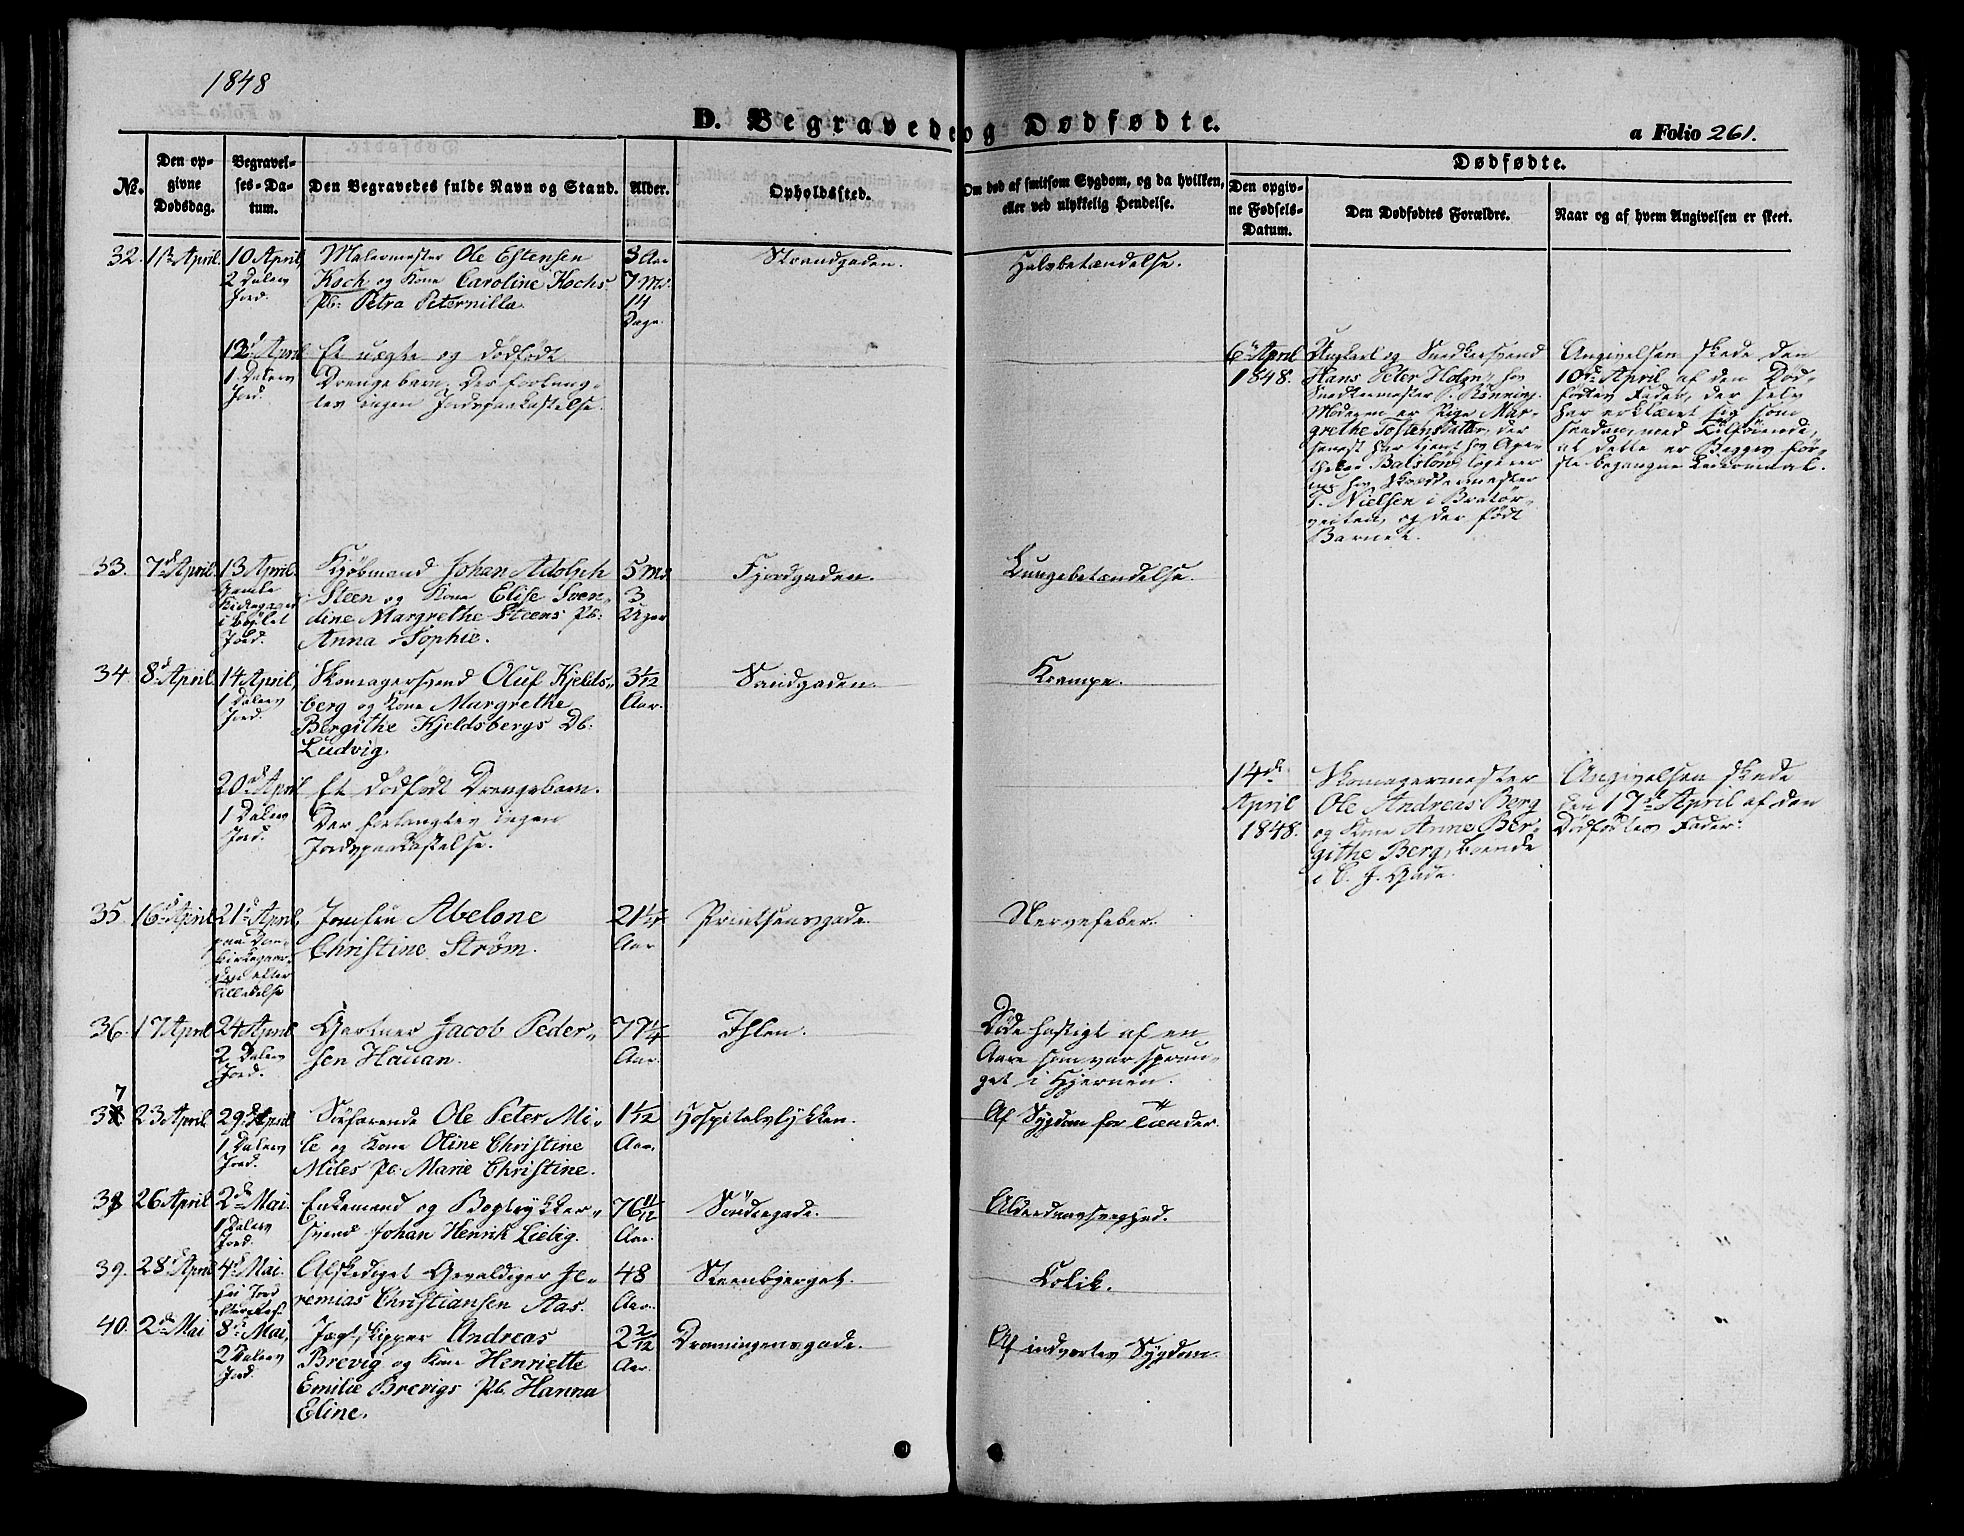 1848
D. Begravede og Dødfødte.
a Folio 261.
№.
Den op-
givne
Dødsdag.
Begravel-
ses-Da-
tum.
Den Begravedes fulde Navn og Stand.
Alder.
Opholdssted.
Om død af smitsom Sygdom, og da hvilken,
eller ved ulykkelig Hendelse.
Dødfødte.
Den opgiv-
ne Fødsels-
Datum.
Den Dødfødtes Forældre.
Naar og af hvem Angivelsen er skeet.
32. 1ste April. 10 April,
2 Dalers
Jord.
Malermester Ole Estensen
Koch og Kone Caroline Kochs
Pb: Petra Peternilla.
3 Aar
7 Md.
14
Dage.
Strandgaden.
Halsbetændelse.
13de April
1 Dalers
Jord.
Et uægte og dødfødt
Drengebarn. Der forlang-
tes ingen Jordspaakastelse.
6te April
1848.
Ungkarl og Snedkersvend
Hans Peter Holm, hos
Snedkermester
Moderen er Pige Mar-
grethe Tostensdatter, der
senest har tjent hos Apo-
theker Balslow, logerer
nu hos Skræddermester
T. Nielsen i Bratør-
veiten, og der født
Barnet.
Angivelsen skede den
10de April af den Død-
fødtes Fader, der selv
har erklæret sig som
saadan, med Tilføiende,
at dette er Begges før-
ste begangne Leiermaal.
33. 7de April. 13 April.
Gamle
Kirkegaard
i kjøbt
Jord.
Kjøbmand Johan Adolph
Steen og Kone Elise Sven-
dine Margrethe Steens Pb:
Anna Sophie.
5 Md.
3
Uger
Fjordgaden.
Lungebetændelse.
34. 8de April. 14 April,
1 Dalers
Jord.
Skomagersvend Oluf Kjelds-
berg og Kone Margrethe
Bergithe Kjeldsbergs Db:
Ludvig.
3 1/12
Aar.
Sandgaden.
Krampe.
20de April
1 Dalers
Jord.
Et dødfødt Drengebarn.
Der forlangtes ingen
Jordspaakastelse.
14de
April
1848.
Skomagermester
Ole Andreas Berg
og Kone Anne Ber-
githe Berg, boende
i C. J. Gade.
Angivelsen skede
den 17de April af den
Dødfødtes Fader.
35. 16de April 21de April,
paa Dom-
kirkegaar-
den efter
Tilladelse
Jomfru Abelone
Christine Strøm.
21 1/4
Aar
Printsensgade.
Nervefeber.
36. 17 April 24 April
2 Dalers
Jord.
Gartner Jacob Peder-
sen Hauan.
77 1/4
Aar.
Ihlen.
Døde hastigt af en
Aare som var sprun-
get i Hjernen.
37 23 April 29de April
1 Dalers
Jord.
Søfarende Ole Peter Mi-
le og Kone Oline Christine
Miles Pb. Marie Christine.
1 1/12
Aar.
Hospitalsløkken.
Af Sygdom for Tænder.
38 26 April 2de Mai.
1 Dalers
Jord.
Enkemand og Bogtrykker-
svend Johan Henrik Lielig.
76 11/12
Aar.
Søndregade.
Alderdomssvaghed.
39. 28de April 4de Mai.
fri Jord
Afskediget Gevaldiger Je-
remias Christiansen Aas.
48
Aar.
Steenbjerget.
Colik.
40. 2de Mai 8de Mai,
2 Dalers
Jord.
Jagtskipper Andreas
Brevig og Kone Henriette
Emilie Brevigs Pb. Hanna
Eline.
2 2/12
Aar.
Dronningensgade.
Af indvortes Sygdom.